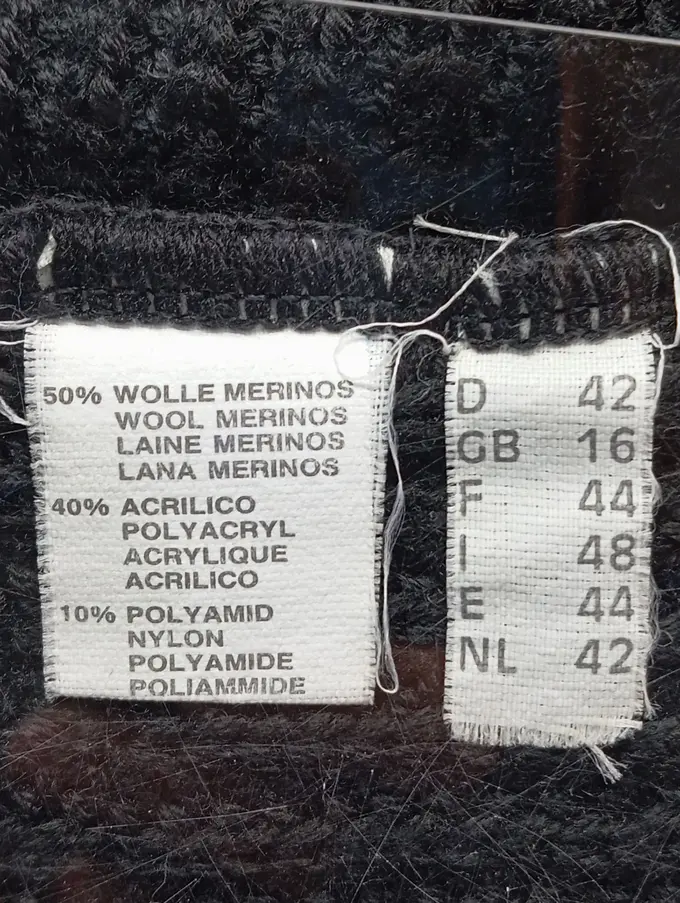 50% WOLLE MERINOS
WOOL MERINOS
LAINE MERINOS
LANA MERINOS
40% ACRILICO
POLYACRYL
ACRYLIQUE
ACRILICO
10% POLYAMID
NYLON
POLYAMIDE
POLIAMMIDE
D 42
GB 16
F 44
I 48
E 44
NL 42